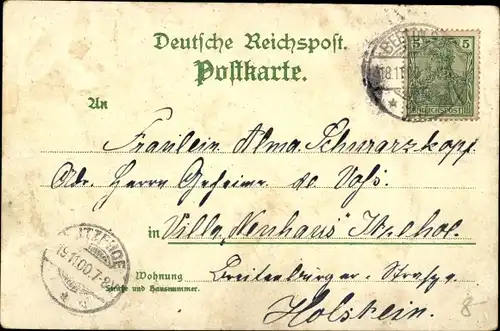 Deutsche Reichspost.
Postkarte.
5 5
REICHSPOST
BERLIN
18.11.00
An
Fräulein Alma Schwarzkopf
Adr. Herrn Geheimr. de Vohs.
in Villa "Neuhaus" Itzehoe.
ITZEHOE
19.11.00.7-8
Wohnung
Straße und Hausnummer.
Breitenburger-Straße
Holstein.
8